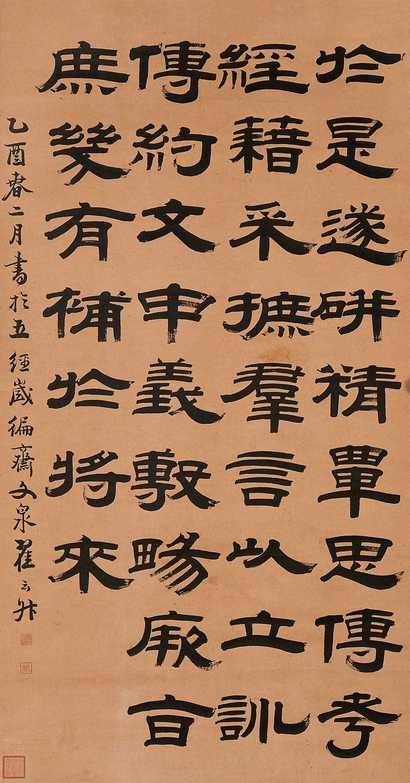 於是遂研精覃思傳考
經藉采摭羣言以立訓
傳約文申義敷暢厥旨
庶幾有補於將來
乙酉春二月書於五經歲編齋文泉翟云升